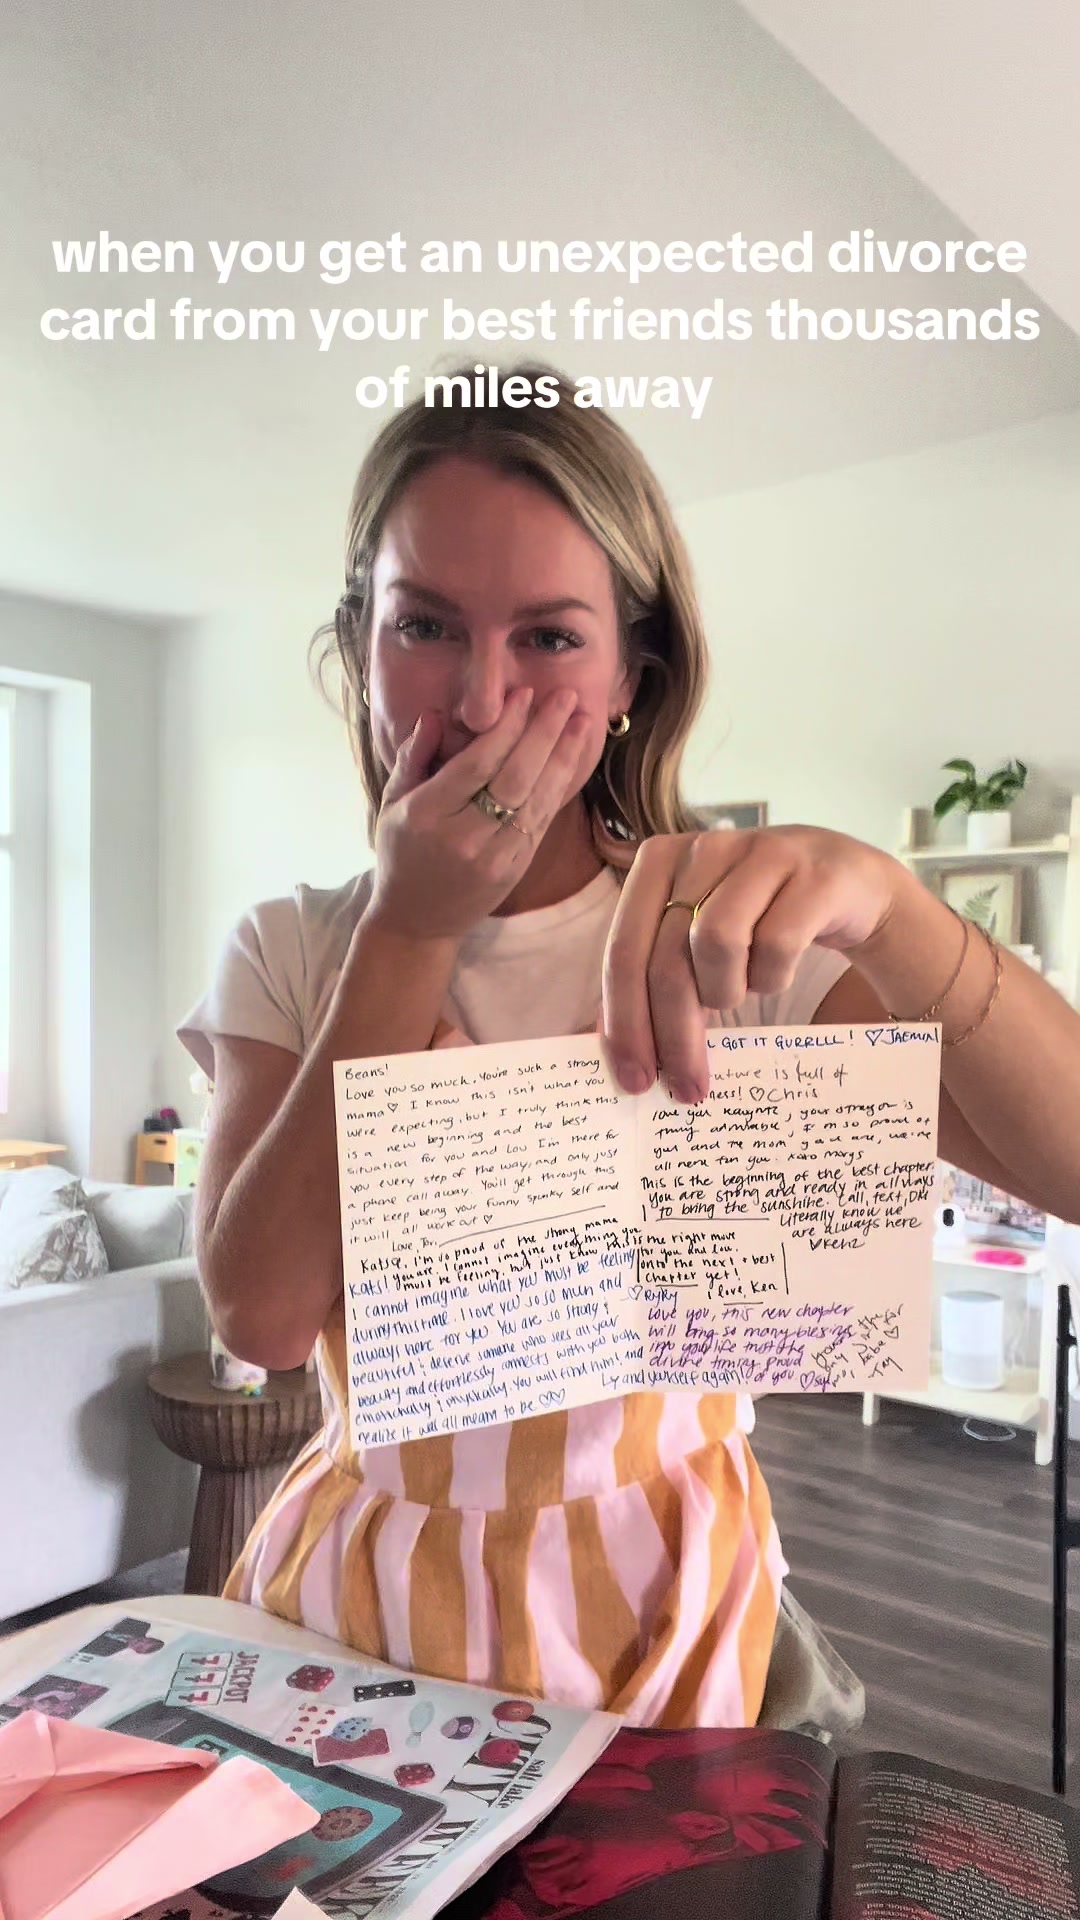 when you get an unexpected divorce
card from your best friends thousands
of miles away
Beans!
Love you so much. You're such a strong
mama♡ I know this isn't what you
were expecting, but I truly think this
is a new beginning and the best
situation for you and Lou I'm here for
you every step of the way, and only just
a phone call away. You'll get through this
just keep being your funny spunky self and
it will all work out ♡
Love, Tori
Katsie, I'm so proud of the strong mama
you are. I cannot imagine everything you
must be feeling, but just know this is the right move
for you and Lou.
onto the next + best
chapter yet!
I love, Ken
Kats! I cannot imagine what you must be feeling
during this time. I love you so so much and
always here for you You are so strong &
beautiful & deserve someone who sees all your
beauty and effortlessly connects with you both
emotionally & physically. You will find him! and
realize it was all meant to be ♡♡
♡ RyRy
GOT IT GURRLLL! ♡JAEMIN
future is full of
♡Chris
love you, your strength is
truly admirable, I'm so proud of
you and the mom you are, we're
all here for you. xoxo margs
This is the beginning of the best chapter.
You are strong and ready in all ways
to bring the sunshine. Call, text, DM
Literally know we
are always here
♡Kenz
Love you, this new chapter
will bring so many blessings
into your life trust the
divine timing proud
of you
Ly and yourself again!
Tay
JACKPOT
777
salt lake
CITY
WEEK